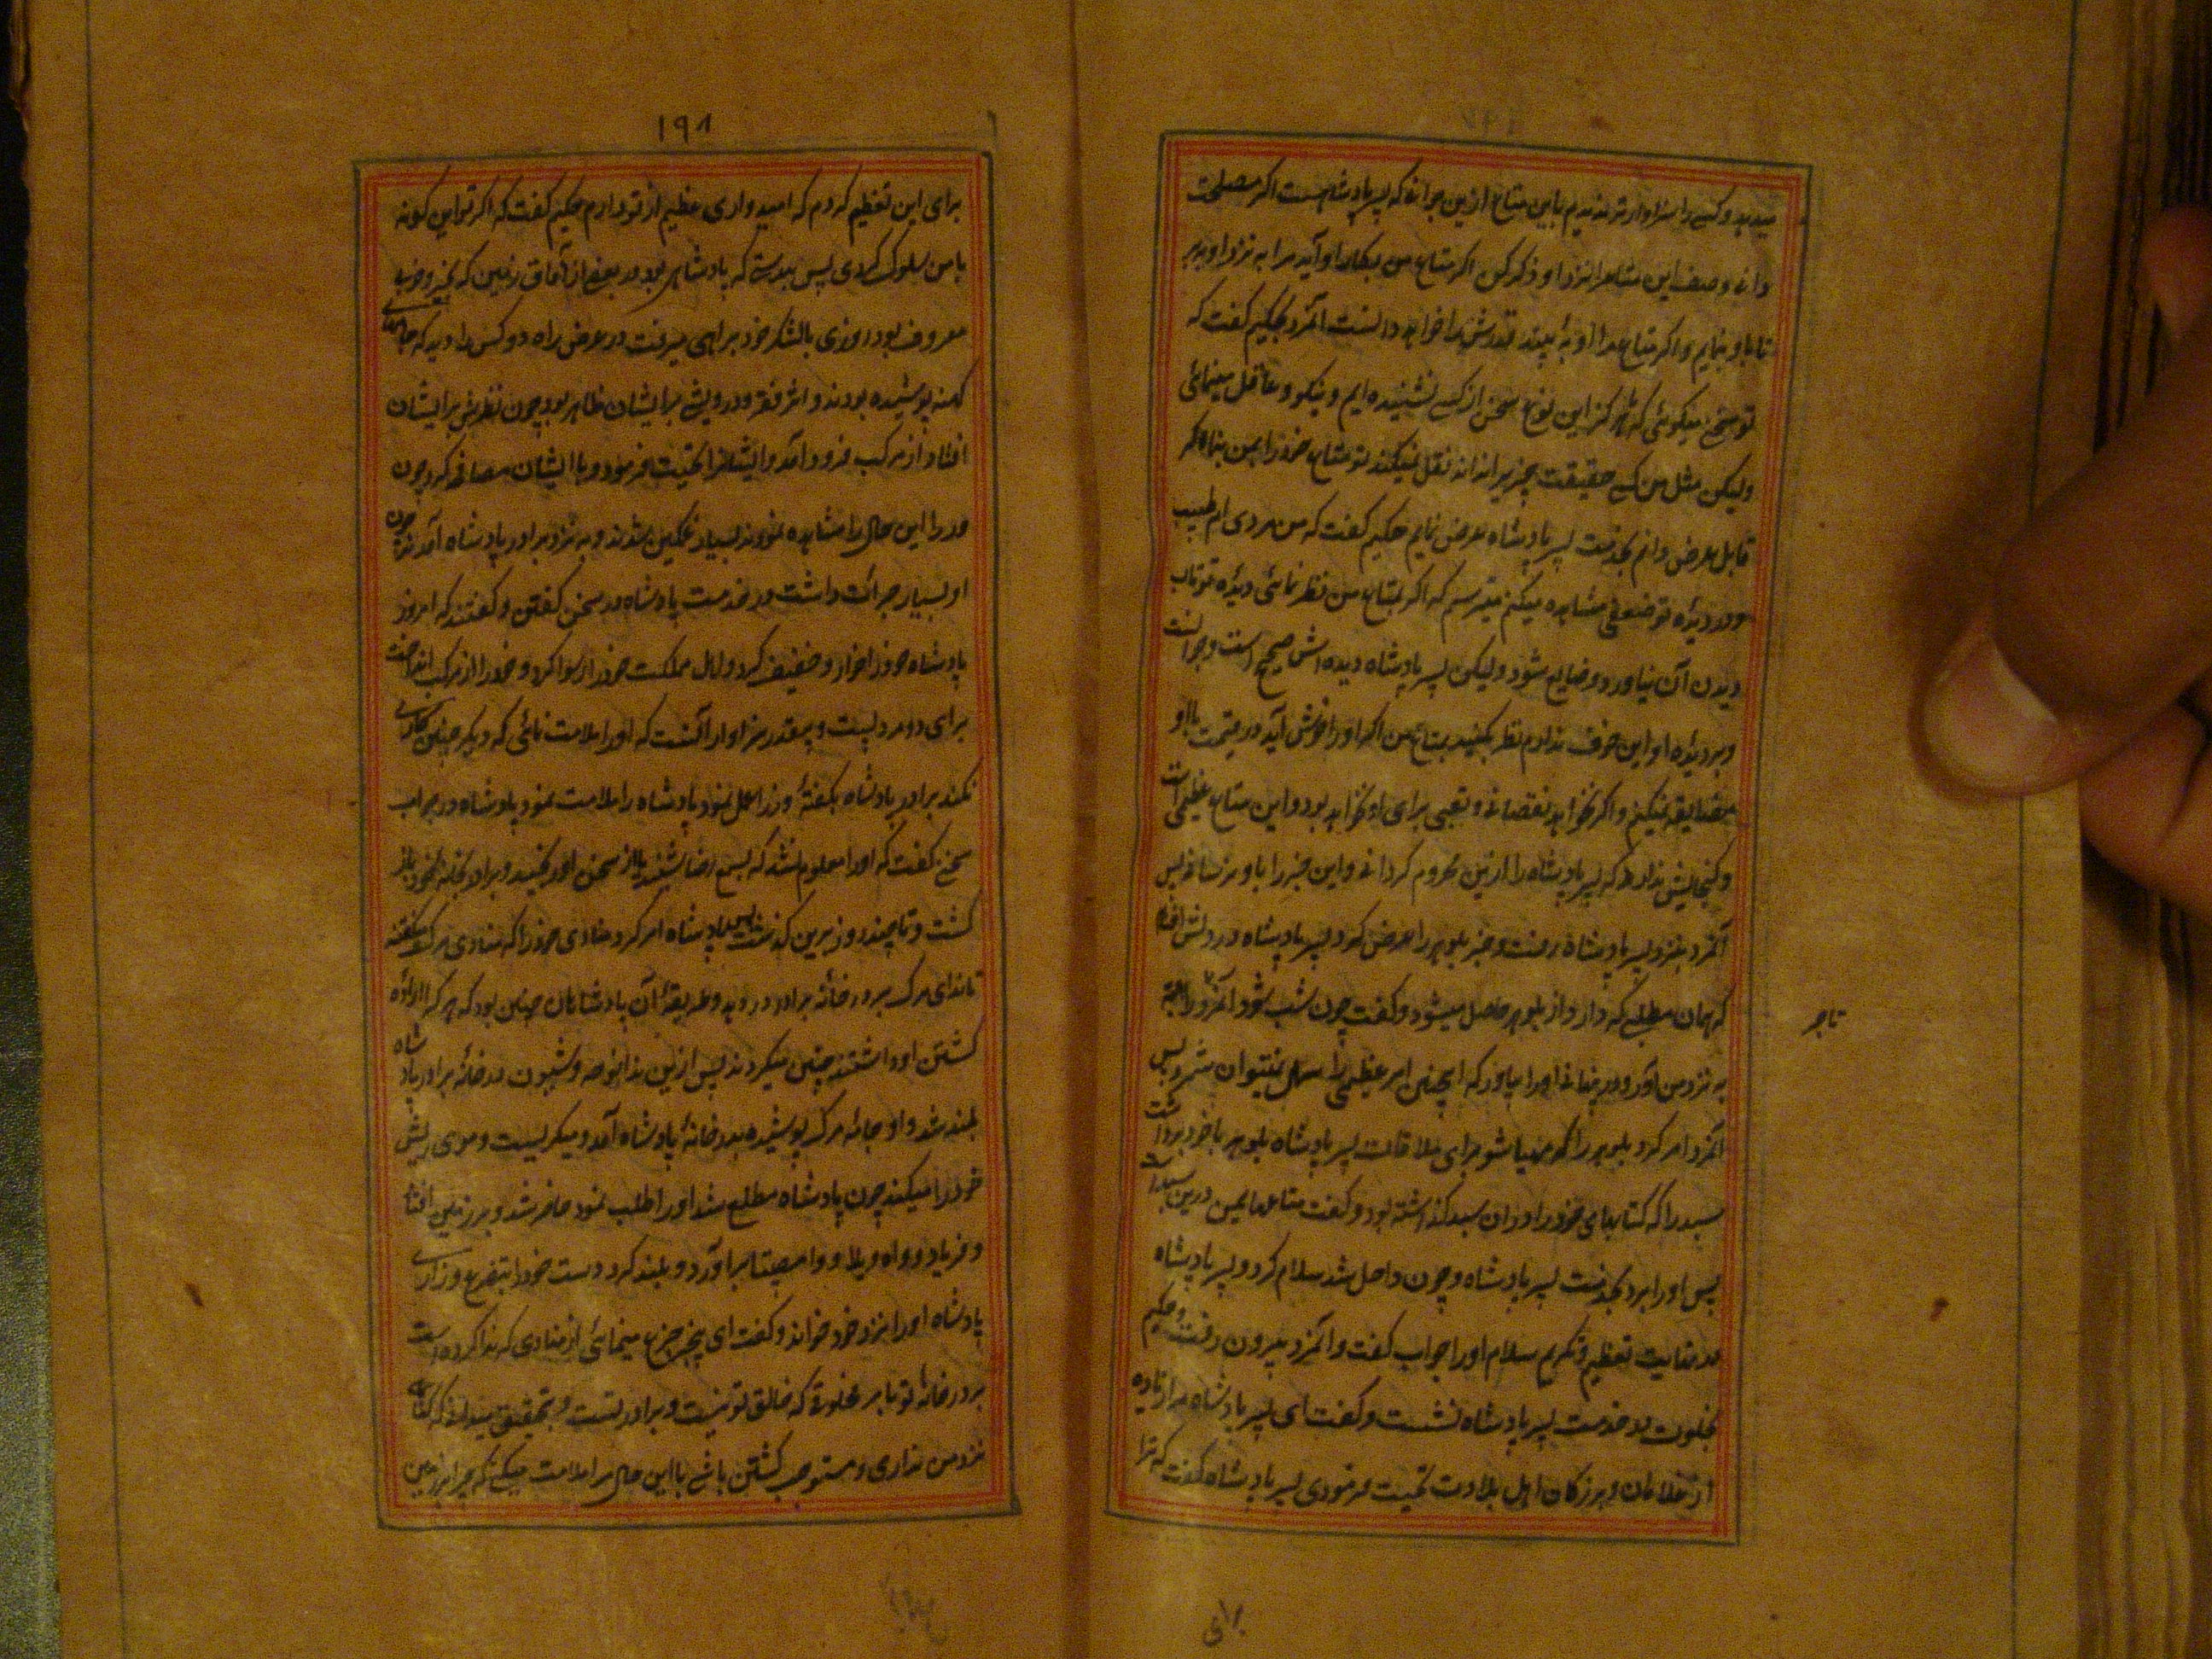 میدهد و کسی را سزاوارتر ندیدم باین متاع ازین جوانی که پسر پادشاهست اگر مصلحت
دانی وصف این متاع را نزد او ذکر کن اگر متاع من بکار او آید مرا به نزد او ببر
تا باو بنمایم و اگر متاع مرا او به بیند قدرش را خواهد دانست آنمرد بحکیم گفت که
تو سخنی میگوئی که هرگز این نوع سخن از کسی نشنیده ایم و نیکو و عاقل مینمائی
ولیکن مثل من کسی حقیقت چیزیرا نداند نقل نمیکند تو متاع خود را بمن بنما اگر
قابل عرض دانم بخدمت پسر پادشاه عرض نمایم حکیم گفت که من مردی ام طبیب
و در دیدهٔ تو ضعفی مشاهده میکنم میترسم که اگر بمتاع من نظر نمائی دیدهٔ تو تاب
دیدن آن نیاورد و ضایع شود ولیکن پسر پادشاه دیده اش صحیح است و جوانست
و بر دیدهٔ او این خوف ندارم نظر بکنید بمتاع من اگر او را خوش آید در قیمت با او
مضایقه نمیکنم و اگر نخواهد نقصانی و تعبی برای او نخواهد بود و این متاع عظیمی است
و گنجایش ندارد که پسر پادشاه را ازین محروم گردانی و این خبر را باو نرسانی پس
آنمرد بنزد پسر پادشاه رفت و خبر بلوهر را عرض کرد پسر پادشاه در دلش افتاد
که همان مطلبی که دارد از بلوهر حاصل میشود و گفت چون شب شود آنمرد را البته
به نزد من آور و در پنهانی او را بیاور که اینچنین امر عظیمی را سهل نمیتوان شمرد پس
آنمرد امر کرد بلوهر را که مهیا شو برای ملاقات پسر پادشاه بلوهر با خود برداشت
سبد را که کتابهای خود را در آن سبد گذاشته بود و گفت متاعهایمن درین سبد است
پس او را برد بخدمت پسر پادشاه و چون داخل شد سلام کرد و پسر پادشاه
در نهایت تعظیم و تکریم سلام او را جواب گفت و آنمرد بیرون رفت و حکیم
بخلوت در خدمت پسر پادشاه نشست و گفت ای پسر پادشاه مرا زیاده
از غلامان و بزرگان اهل بلادت تحیت فرمودی پسر پادشاه گفت که ترا
تاجر
برای
۱۹۸
برای این تعظیم کردم که امیدواری عظیم از تو دارم حکیم گفت که اگر تو این گونه
با من سلوک کردی پس بدرستیکه پادشاهی بود در بعضی از آفاق زمین که بخیر و خوبی
معروف بود روزی بالشکر خود براهی میرفت در عرض راه دو کس را دید که جامهای
کهنه پوشیده بودند و اثر فقر و درویشی بر ایشان ظاهر بود چون نظرش بر ایشان
افتاد از مرکب فرود آمد و ایشانرا تحیت فرمود و با ایشان مصافحه کرد چون
وزرا این حال را مشاهده نمودند بسیار غمگین شدند و به نزد برادر پادشاه آمدند چون
او بسیار جرائت داشت در خدمت پادشاه در سخن گفتن و گفتند که امروز
پادشاه خود را خوار و خفیف کرد و اهل مملکت خود را رسوا کرد و خود را از مرکب انداخت
برای دو مرد پست و بیقدر سزاوار آنست که او را ملامت نمائی که دیگر چنین کاری
نکند برادر پادشاه بگفتهٔ وزرا عمل نمود پادشاه را ملامت نمود پادشاه در جواب
سخنی گفت که او را معلوم نشد که بسمع رضا شنید یا از سخن او رنجید و برادر بخانه خود باز
گشت و تا چند روز برین گذشت پس پادشاه امر کرد منادی خود را که منادی مرگ میگفتند
تا ندای مرگ بر در خانهٔ برادر در دهد و طریقهٔ آن پادشاهان چنین بود که هر که را ارادهٔ
کشتن او داشتند چنین میکردند پس ازین ندا نوحه و شیون در خانهٔ برادر پادشاه
بلند شد و او جامهٔ مرگ پوشیده بدر خانهٔ پادشاه آمد و میگریست و موی ریش
خود را میکند چون پادشاه مطلع شد او را طلب نمود حاضر شد و بر زمین افتاد
و فریاد و واه ویلا و وا مصیبتا بر آورد و بلند کرد دست خود را بتضرع و زاری
پادشاه او را نزد خود خواند و گفت ای بیخرد جزع مینمائی از منادی که ندا کرده است
بر در خانهٔ تو بامر مخلوقی که خالق تو نیست و برادر تست و بتحقیق میدانی که گناهی
نزد من نداری و مستوجب کشتن باشی با این حال مرا ملامت میکنی که چرا بر زمین